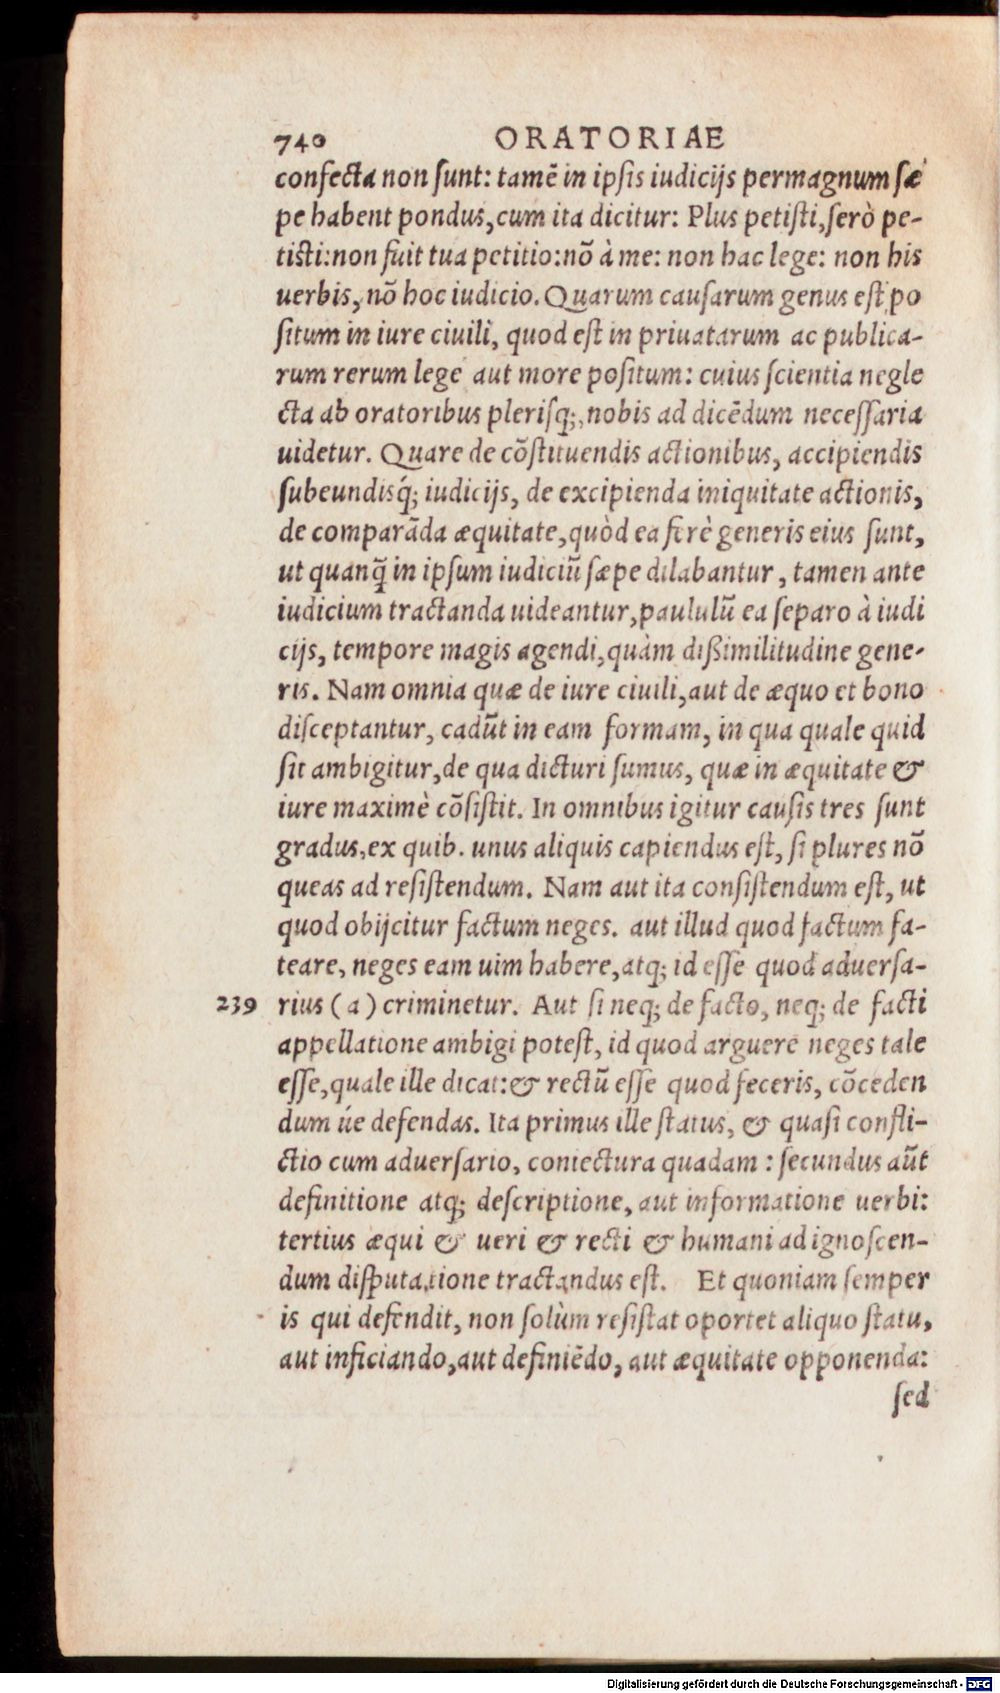 740 ORATORIAE
confecta non ſunt: tamẽ in ipſis iudicijs permagnum ſæ
pe habent pondus, cum ita dicitur: Plus petiſti, ſerò pe-
tisti: non fuit tua petitio: nõ à me: non hac lege: non his
uerbis, nõ hoc iudicio. Quarum cauſarum genus eſt po
ſitum in iure ciuili, quod eſt in priuatarum ac publica-
rum rerum lege aut more poſitum: cuius ſcientia negle
cta ab oratoribus pleriſq;, nobis ad dicẽdum neceſſaria
uidetur. Quare de cõſtituendis actionibus, accipiendis
ſubeundisq́; iudicijs, de excipienda iniquitate actionis,
de comparãda æquitate, quòd ea ferè generis eius ſunt,
ut quanq̃ in ipſum iudiciũ ſæpe dilabantur, tamen ante
iudicium tractanda uideantur, paululũ ea ſeparo à iudi
cijs, tempore magis agendi, quàm dißimilitudine gene-
ris. Nam omnia quæ de iure ciuili, aut de æquo et bono
diſceptantur, cadũt in eam formam, in qua quale quid
ſit ambigitur, de qua dicturi ſumus, quæ in æquitate &
iure maximè cõſiſtit. In omnibus igitur cauſis tres ſunt
gradus, ex quib. unus aliquis capiendus eſt, ſi plures nõ
queas ad reſiſtendum. Nam aut ita conſiſtendum eſt, ut
quod obijcitur factum neges. aut illud quod factum fa-
teare, neges eam uim habere, atq; id eſſe quod aduerſa-
239 rius (a) criminetur. Aut ſi neq; de facto, neq; de facti
appellatione ambigi poteſt, id quod arguere neges tale
eſſe, quale ille dicat: & rectũ eſſe quod feceris, cõceden
dum úe defendas. Ita primus ille ſtatus, & quaſi confli-
ctio cum aduerſario, coniectura quadam: ſecundus aũt
definitione atq; deſcriptione, aut informatione uerbi:
tertius æqui & ueri & recti & humani ad ignoſcen-
dum diſputatione tractandus eſt. Et quoniam ſemper
is qui defendit, non ſolùm reſiſtat oportet aliquo ſtatu,
aut inficiando, aut definiẽdo, aut æquitate opponenda:
ſed
Digitalisierung gefördert durch die Deutsche Forschungsgemeinschaft - DFG